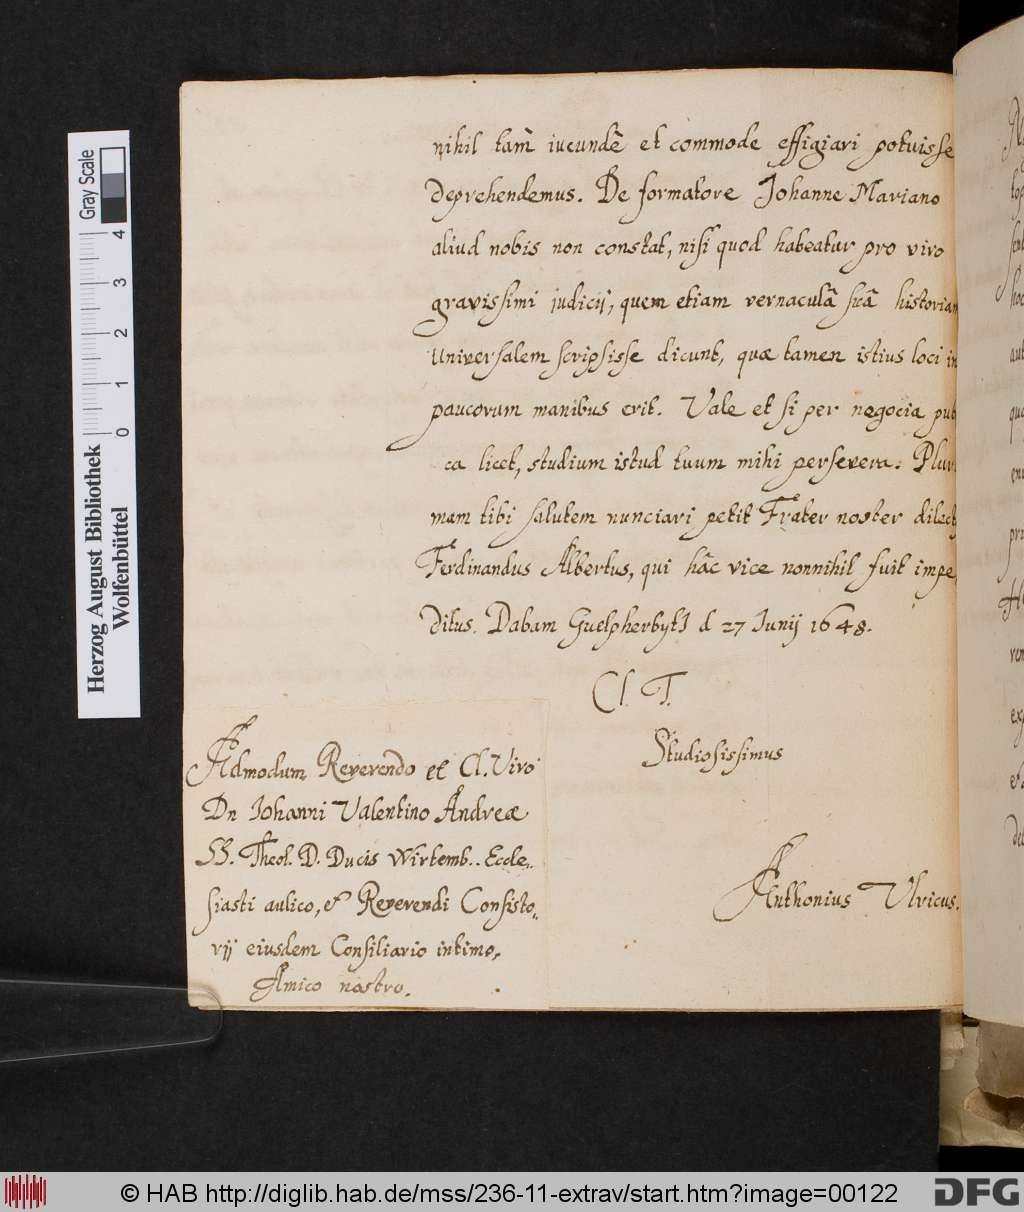 nihil tam̃ iucundè et commode effigiari potuisse
deprehendemus. De formatore Johanne Mariano
aliud nobis non constat, nisi quod habeatur pro viro
gravissimi judicij, quem etiam vernaculâ suâ historiam
Universalem scripsisse dicunt, quæ tamen istius loci in
paucorum manibus erit. Vale et si per negocia pub
ca licet, studium istud tuum mihi persevera. Pluri
mam tibi salutem nunciari petit Frater noster dilect
Ferdinandus Albertus, qui hâc vice nonnihil fuit impe,
ditus. Dabam Guelpherbyti d 27 Junij 1648.
Cl. T.
Studiosissimus
Anthonius Ulricus.
Admodum Reverendo et Cl. Viro
Dn Johanni Valentino Andreæ
SS. Theol. D. Ducis Wirtemb.. Eccle,,
siasti aulico, & Reverendi Consisto,,
rij eiusdem Consiliario intimo,
Amico nostro.
Herzog August Bibliothek
Wolfenbüttel
0 1 2 3 4
Gray Scale
© HAB http://diglib.hab.de/mss/236-11-extrav/start.htm?image=00122
DFG